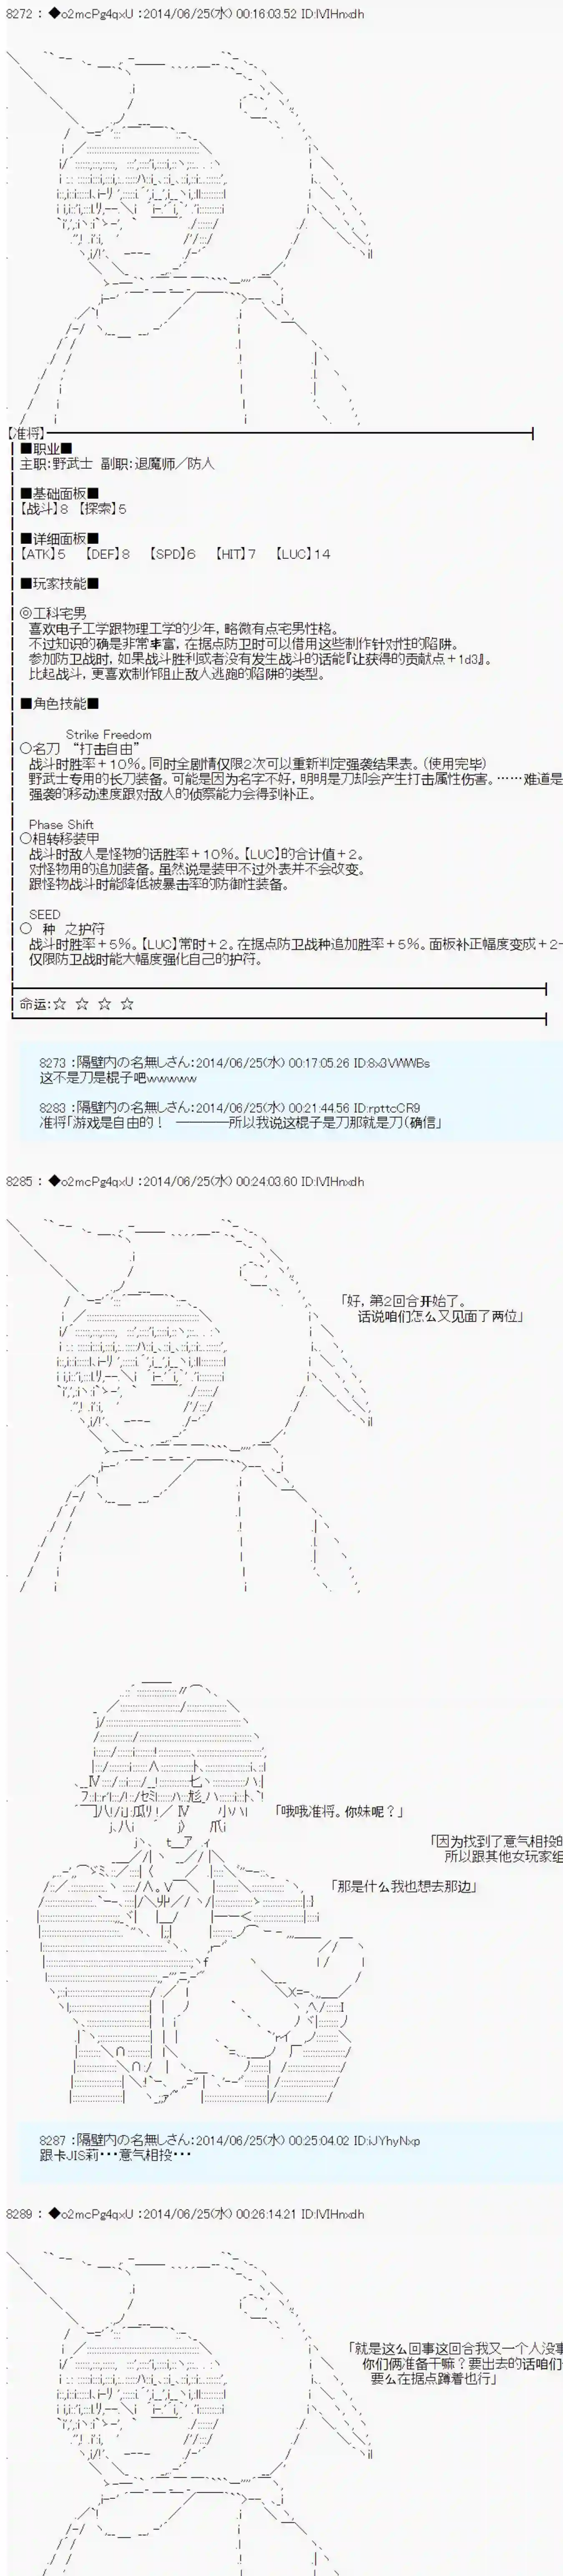 8272 : ◆o2mcPg4qxU :2014/06/25(水) 00:16:03.52 ID:lVIHnxdh
【准将】
■职业■
主职:野武士 副职:退魔师／防人
■基础面板■
【战斗】8 【探索】5
■详细面板■
【ATK】5 【DEF】8 【SPD】6 【HIT】7 【LUC】14
■玩家技能■
◎工科宅男
喜欢电子工学跟物理工学的少年，略微有点宅男性格。
不过知识的确是非常丰富，在据点防卫时可以借用这些制作针对性的陷阱。
参加防卫战时，如果战斗胜利或者没有发生战斗的话能『让获得的贡献点＋1d3』。
比起战斗，更喜欢制作阻止敌人逃跑的陷阱的类型。
■角色技能■
Strike Freedom
○名刀 “打击自由”
战斗时胜率＋10%。同时全剧情仅限2次可以重新判定强袭结果表。(使用完毕)
野武士专用的长刀装备。可能是因为名字不好，明明是刀却会产生打击属性伤害。……难道是
强袭的移动速度跟对敌人的侦察能力会得到补正。
Phase Shift
○相转移装甲
战斗时敌人是怪物的话胜率＋10%。【LUC】的合计值＋2。
对怪物用的追加装备。虽然说是装甲不过外表并不会改变。
跟怪物战斗时能降低被暴击率的防御性装备。
SEED
○ 种 之护符
战斗时胜率＋5%。【LUC】常时＋2。在据点防卫战种追加胜率＋5%。面板补正幅度变成＋2
仅限防卫战时能大幅度强化自己的护符。
命运:☆ ☆ ☆ ☆
8273 :隔壁内の名無しさん:2014/06/25(水) 00:17:05.26 ID:8x3VWWBs
这不是刀是棍子吧wwwww
8283 :隔壁内の名無しさん:2014/06/25(水) 00:21:44.56 ID:rpttcCR9
准将「游戏是自由的！ ————所以我说这棍子是刀那就是刀(确信」
8285 : ◆o2mcPg4qxU :2014/06/25(水) 00:24:03.60 ID:lVIHnxdh
「好，第2回合开始了。
话说咱们怎么又见面了两位」
「哦哦准将。你妹呢？」
「因为找到了意气相投的
所以跟其他女玩家组
「那是什么我也想去那边」
8287 :隔壁内の名無しさん:2014/06/25(水) 00:25:04.02 ID:iJYhyNxp
跟卡JIS莉･･･意气相投･･･
8289 : ◆o2mcPg4qxU :2014/06/25(水) 00:26:14.21 ID:lVIHnxdh
「就是这么回事这回合我又一个人没事
你们俩准备干嘛？要出去的话咱们
要么在据点蹲着也行」